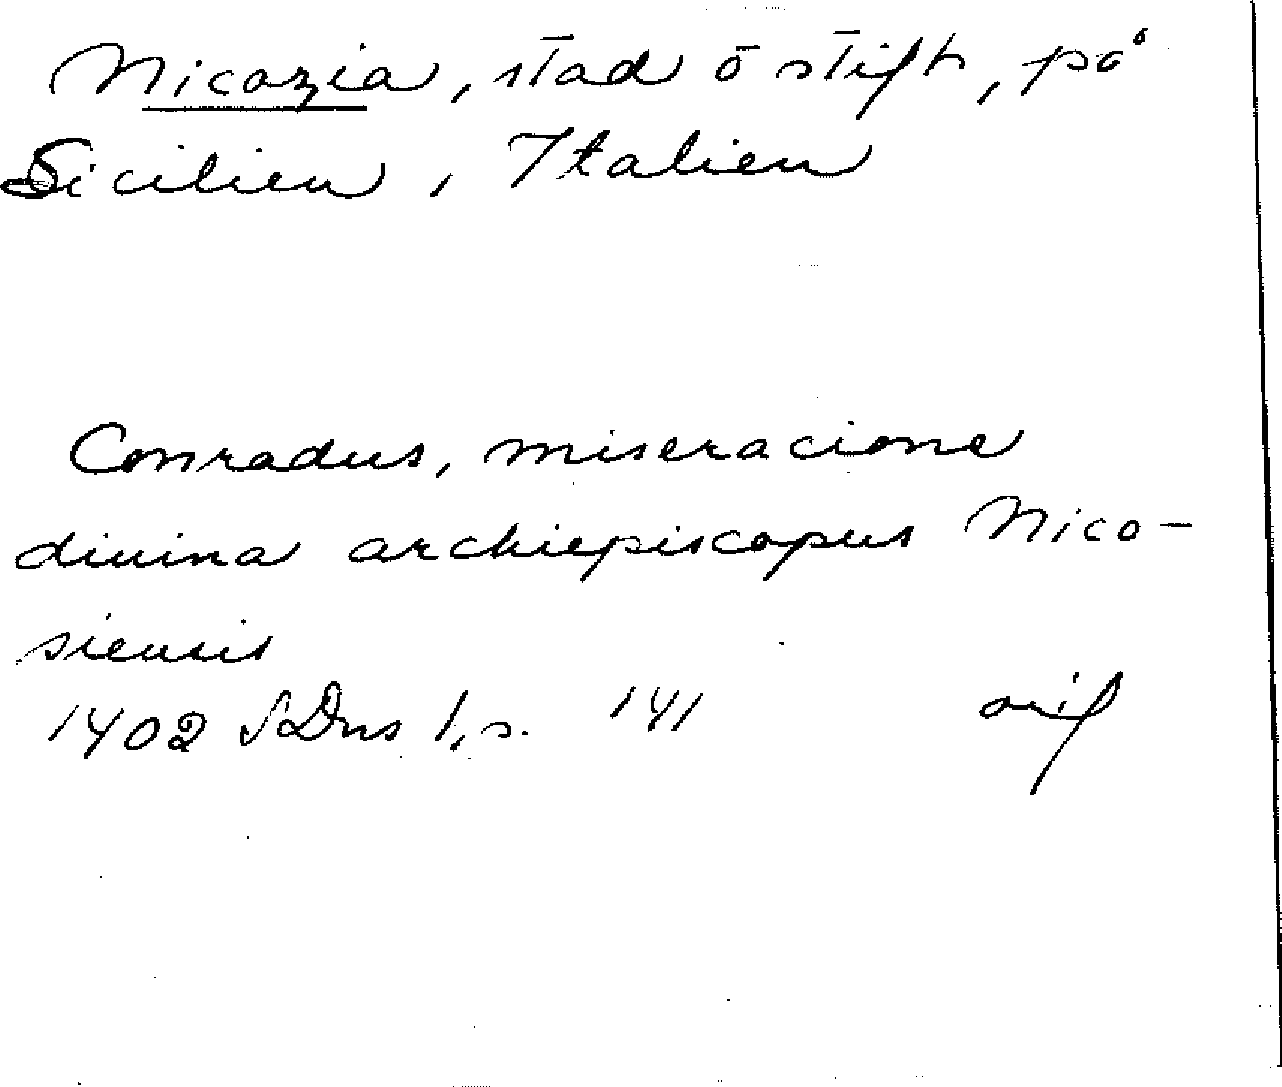 Nicozia, stad o stift, på
Sicilien, Italien
Conradus, miseracione
divina archiepiscopus Nico-
siensis
1402 SDns 1, s. 141 orig